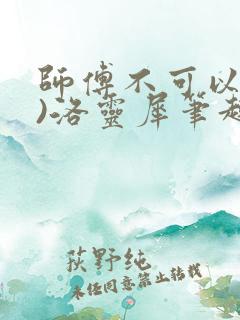 師傅不可以
)洛靈犀筆趣
荻野純
未经同意禁止转载